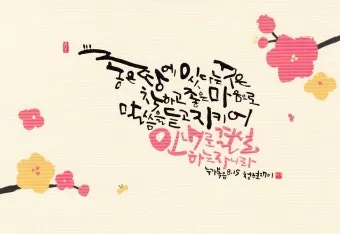 좋은 땅에 있다는 것은
착하고 좋은 마음으로
말씀을 듣고 지키어
인내로 결실
하는 자니라
누가복음 8:15 청현재이